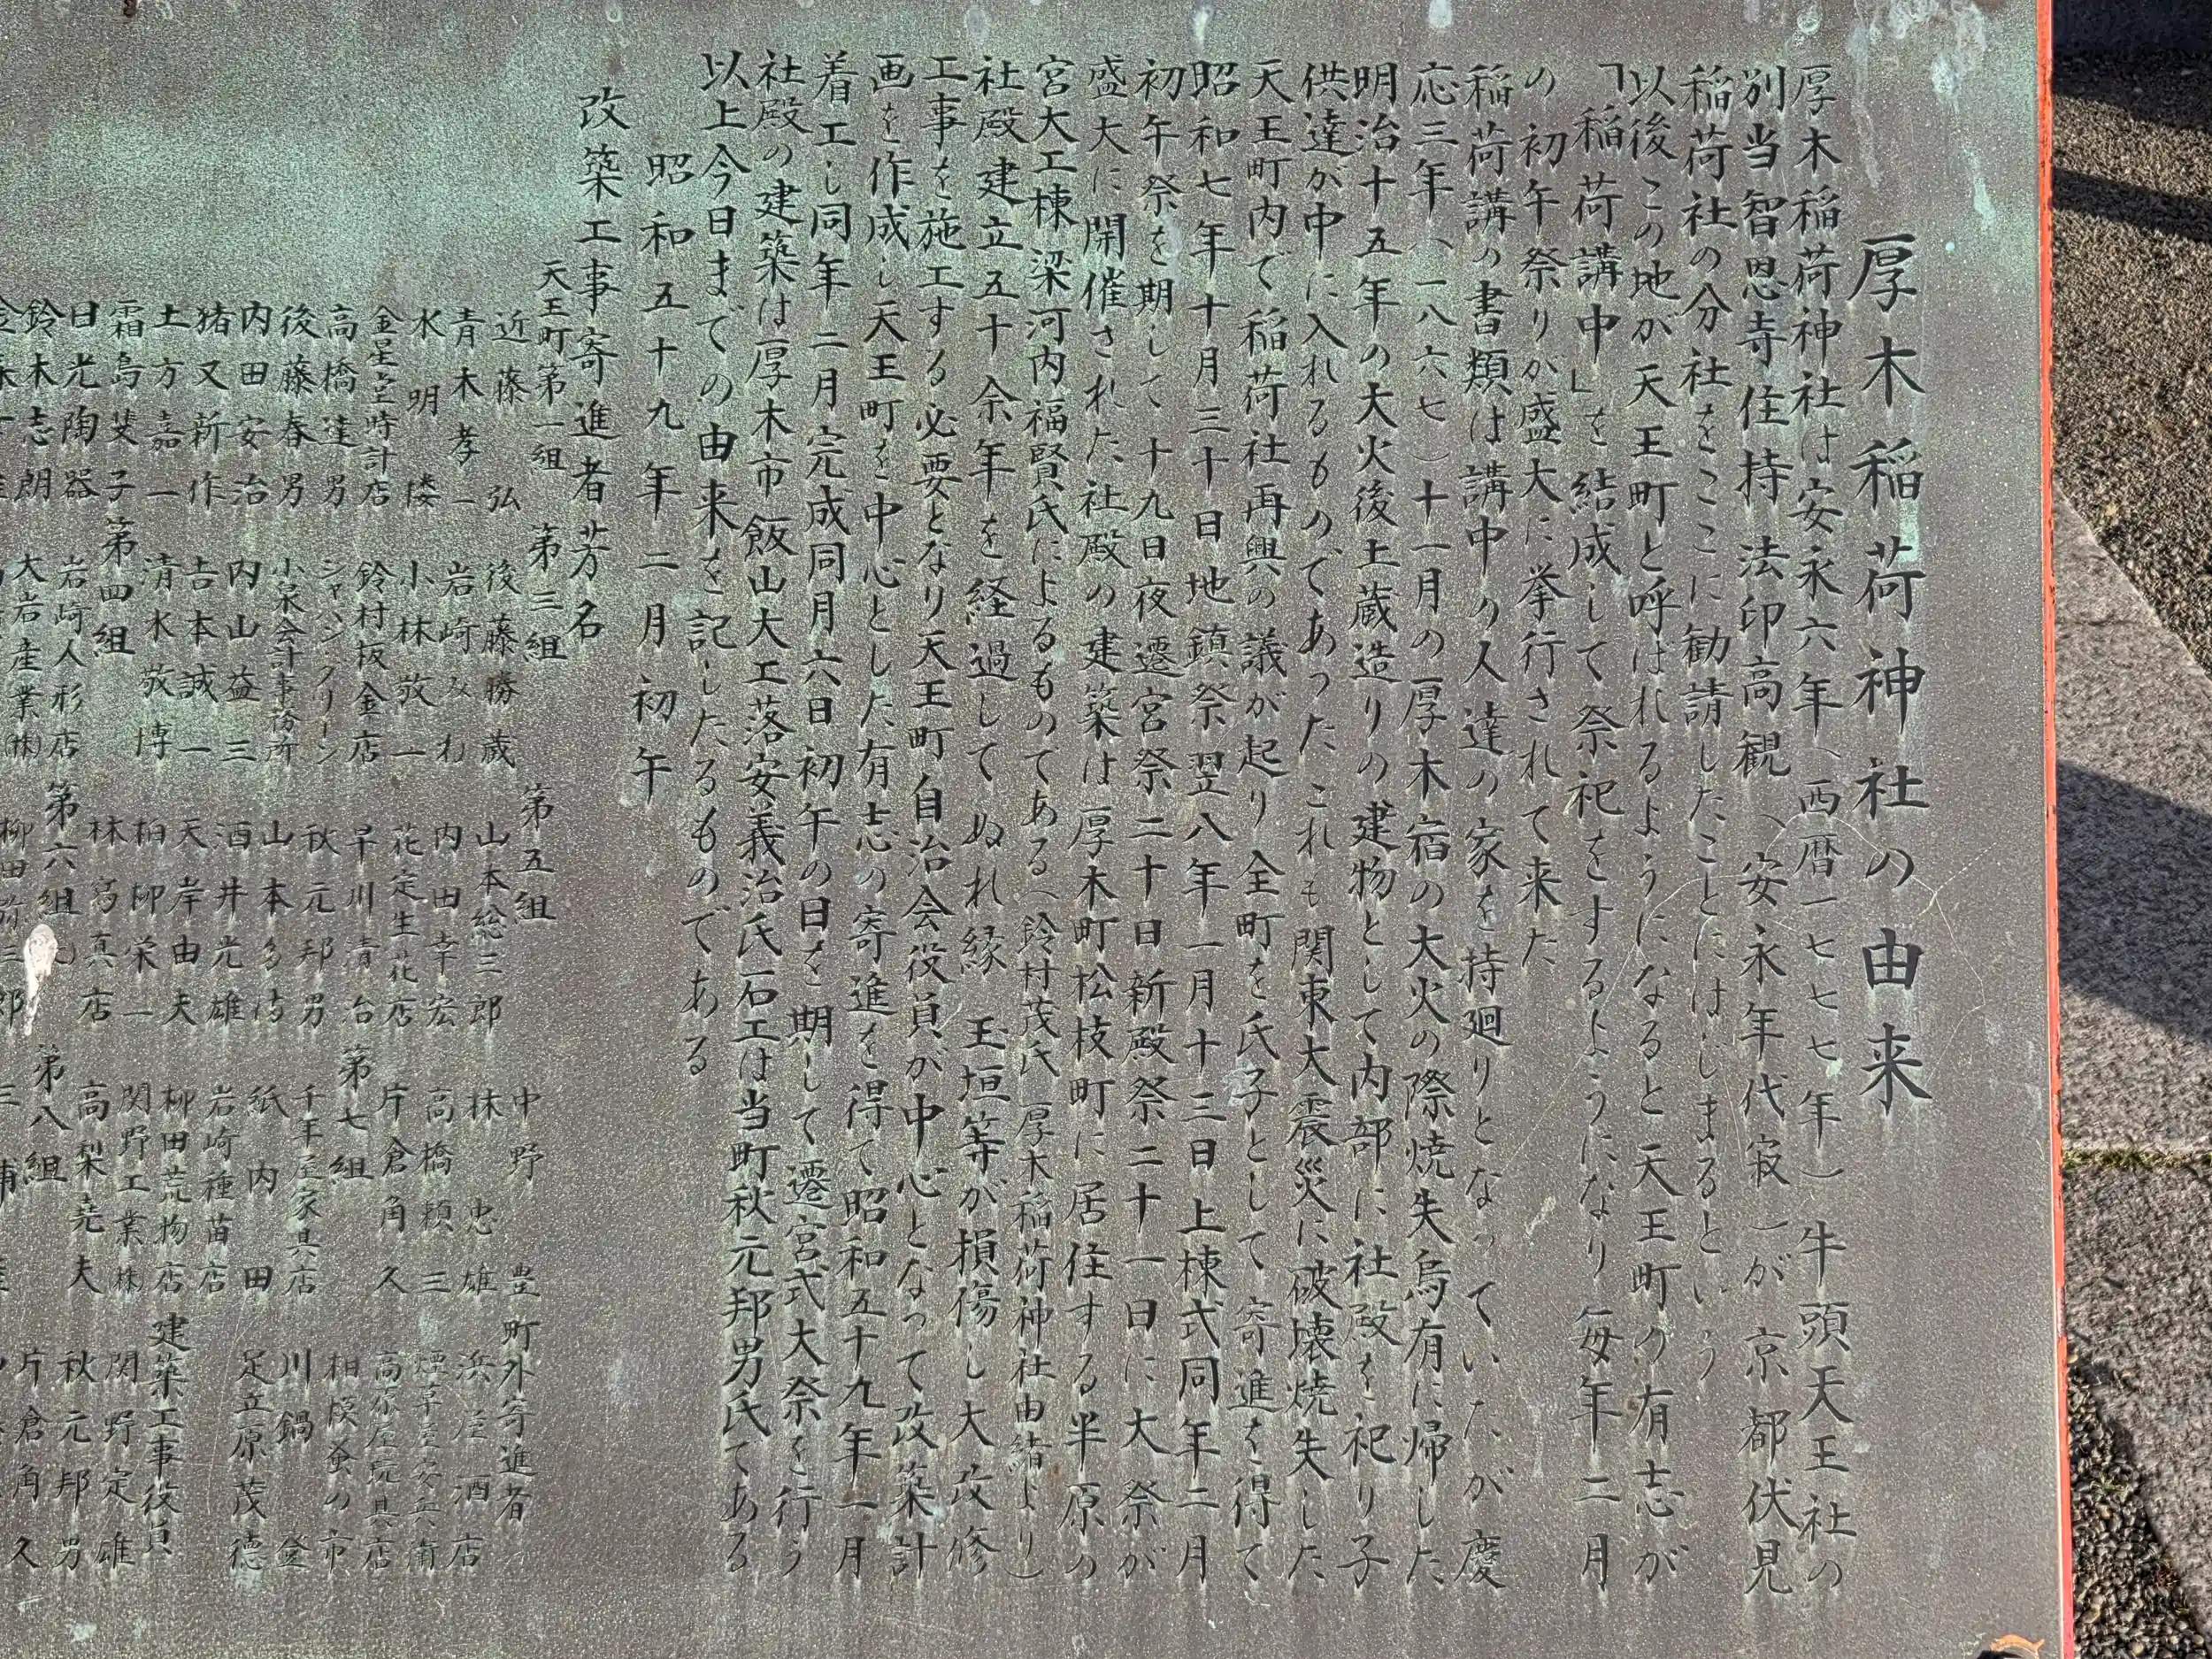 厚木稲荷神社の由来
厚木稲荷神社は安永六年（西暦一七七七年）牛頭天王社の
別当智恩寺住持法印高観（安永年代寂）が京都伏見
稲荷社の分社をここに勧請したことにはじまるという
以後この地が天王町と呼ばれるようになると天王町の有志が
「稲荷講中」を結成して祭祀をするようになり毎年二月
の初午祭りが盛大に挙行されて来た
稲荷講の書類は講中の人達の家を持廻りとなっていたが慶
応三年（一八六七）十一月の厚木宿の大火の際焼失烏有に帰した
明治十五年の大火後土蔵造りの建物として内部に社殿を祀り子
供達が中に入れるものであったこれも関東大震災に破壊焼失した
天王町内で稲荷社再興の議が起り全町を氏子として寄進を得て
昭和七年十月三十日地鎮祭翌八年一月十三日上棟式同年二月
初午祭を期して十九日夜遷宮祭二十日新殿祭二十一日に大祭が
盛大に開催された社殿の建築は厚木町松枝町に居住する半原の
宮大工棟梁河内福賢氏によるものである（鈴村茂氏 厚木稲荷神社由緒より）
社殿建立五十余年を経過してぬれ縁 玉垣等が損傷し大改修
工事を施工する必要となり天王町自治会役員が中心となって改築計
画を作成し天王町を中心とした有志の寄進を得て昭和五十九年一月
着工し同年二月完成同月六日初午の日を期して遷宮式大祭を行う
社殿の建築は厚木市飯山大工落安義治氏石工は当町秋元邦男氏である
以上今日までの由来を記したるものである
昭和五十九年二月初午
改築工事寄進者芳名
天王町第一組
近藤弘
青木孝一
水明楼
金星堂時計店
高橋達男
後藤春男
内田安治
猪又新作
土方嘉一
霜島叟子
日光陶器
鈴木志朗
第三組
後藤勝蔵
岩崎みね
小林敬一
鈴村板金店
シャンシグリーン
小泉会計事務所
内山益三
吉本誠一
清水敬博
第四組
岩崎人形店
大岩産業㈱
第五組
山本総三郎
内田幸宏
花定生花店
早川清治
秋元邦男
山本多満
酒井光雄
天岸由夫
柏柳栄一
林写真店
第六組
柳田
中野豊
林忠雄
高橋頼三
片倉角久
第七組
千年屋家具店
紙内田
岩崎種苗店
柳田荒物店
関野工業㈱
高梨尭夫
第八組
町外寄進者
浜屋酒店
高原屋玩具店
相模蚤の市
川鍋登
足立原茂徳
建築工事役員
関野定雄
秋元邦男
片倉角久